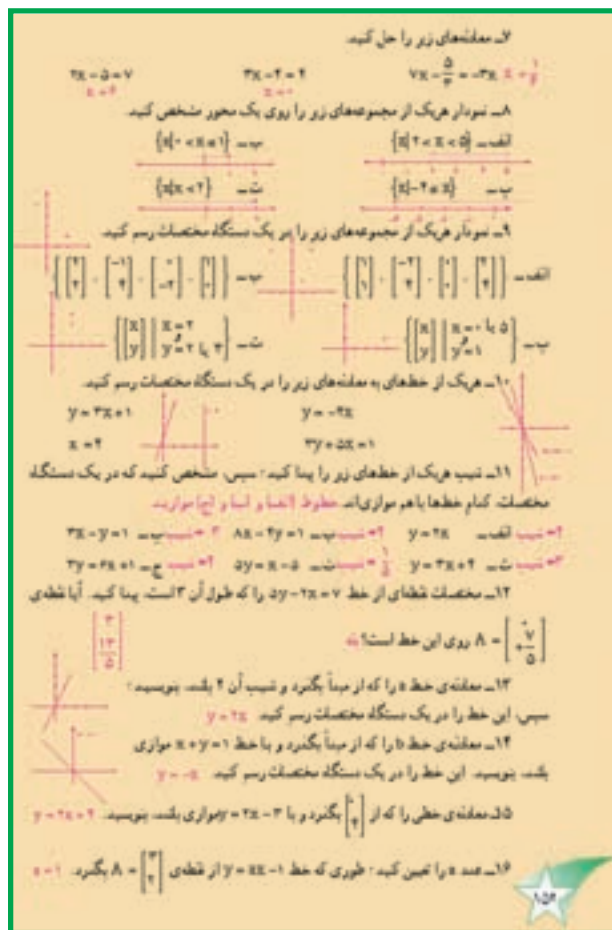 ۷ــ معادله‌های زیر را حل کنید.
۲x − ۵ = ۷    ۳x − ۴ = ۴    ۷x −    = −۳x
۸ــ نمودار هریک از مجموعه‌های زیر را روی یک محور مشخص کنید.
الف ــ {x|۲ < x < ۵}    ب ــ {x|۰ < x ≤ ۱}
پ ــ {x|−۴ ≤ x}    ت ــ {x|x < ۲}
۹ــ نمودار هریک از مجموعه‌های زیر را در یک دستگاه مختصات رسم کنید.
الف ــ    ب ــ
پ ــ {[x y] | x = ۰ یا ۵ و y = ۱}    ت ــ {[x y] | x = ۲ و y = ۲ یا ۳}
۱۰ــ هریک از خط‌های به معادله‌های زیر را در یک دستگاه مختصات رسم کنید.
y = ۳x + ۱    y = −۲x
x = ۴    ۳y + ۵x = ۱
۱۱ــ شیب هریک از خط‌های زیر را پیدا کنید؛ سپس، مشخص کنید که در یک دستگاه
مختصات، کدام خط‌ها با هم موازی‌اند. خطوط (الف) و (ب) و (ج) موازیند.
الف ــ y = ۲x شیب=۲    ب ــ ۸x − ۴y = ۱ شیب=۲    پ ــ ۳x − y = ۱ شیب=۳
ت ــ y = ۳x + ۲ شیب=۳    ث ــ ۵y = x − ۵ شیب=۱/۵    ج ــ ۳y = ۶x + ۱ شیب=۲
۱۲ــ مختصات نقطه‌ای از خط ۵y − ۲x = ۷ را که طول آن ۳ است، پیدا کنید. آیا نقطه‌ی
A = [۰ +۷/۵] روی این خط است؟ بله    [۳ ۱۳/۵]
۱۳ــ معادله‌ی خط a را که از مبدأ بگذرد و شیب آن ۲ باشد، بنویسید؛
سپس، این خط را در یک دستگاه مختصات رسم کنید. y = ۲x
۱۴ــ معادله‌ی خط b را که از مبدأ بگذرد و با خط x + y = ۱ موازی
باشد، بنویسید. این خط را در یک دستگاه مختصات رسم کنید. y = −x
۱۵ــ معادله‌ی خطی را که از [۰ ۴] بگذرد و با y = ۲x − ۳ موازی باشد، بنویسید. y = ۲x + ۴
۱۶ــ عدد a را تعیین کنید؛ طوری که خط y = ax − ۱ از نقطه‌ی A = [۳ ۲] بگذرد. a = ۱
۱۵۲